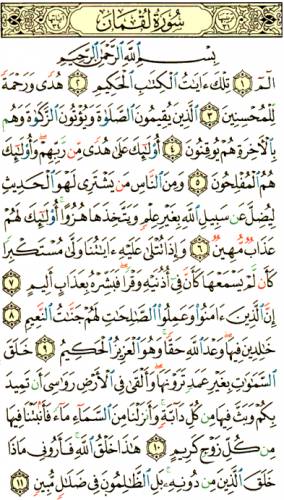 ترتيبها ٣١ سُورَةُ لُقۡمَانَ آياتها ٣٤
بِسۡمِ ٱللَّهِ ٱلرَّحۡمَٰنِ ٱلرَّحِيمِ
الٓمٓ ١ تِلۡكَ ءَايَٰتُ ٱلۡكِتَٰبِ ٱلۡحَكِيمِ ٢ هُدٗى وَرَحۡمَةٗ
لِّلۡمُحۡسِنِينَ ٣ ٱلَّذِينَ يُقِيمُونَ ٱلصَّلَوٰةَ وَيُؤۡتُونَ ٱلزَّكَوٰةَ وَهُم
بِٱلۡأٓخِرَةِ هُمۡ يُوقِنُونَ ٤ أُوْلَٰٓئِكَ عَلَىٰ هُدٗى مِّن رَّبِّهِمۡۖ وَأُوْلَٰٓئِكَ
هُمُ ٱلۡمُفۡلِحُونَ ٥ وَمِنَ ٱلنَّاسِ مَن يَشۡتَرِي لَهۡوَ ٱلۡحَدِيثِ
لِيُضِلَّ عَن سَبِيلِ ٱللَّهِ بِغَيۡرِ عِلۡمٖ وَيَتَّخِذَهَا هُزُوًاۚ أُوْلَٰٓئِكَ لَهُمۡ
عَذَابٞ مُّهِينٞ ٦ وَإِذَا تُتۡلَىٰ عَلَيۡهِ ءَايَٰتُنَا وَلَّىٰ مُسۡتَكۡبِرٗا
كَأَن لَّمۡ يَسۡمَعۡهَا كَأَنَّ فِيٓ أُذُنَيۡهِ وَقۡرٗاۖ فَبَشِّرۡهُ بِعَذَابٍ أَلِيمٍ ٧
إِنَّ ٱلَّذِينَ ءَامَنُواْ وَعَمِلُواْ ٱلصَّٰلِحَٰتِ لَهُمۡ جَنَّٰتُ ٱلنَّعِيمِ ٨
خَٰلِدِينَ فِيهَاۖ وَعۡدَ ٱللَّهِ حَقّٗاۚ وَهُوَ ٱلۡعَزِيزُ ٱلۡحَكِيمُ ٩ خَلَقَ
ٱلسَّمَٰوَٰتِ بِغَيۡرِ عَمَدٖ تَرَوۡنَهَاۖ وَأَلۡقَىٰ فِي ٱلۡأَرۡضِ رَوَٰسِيَ أَن تَمِيدَ
بِكُمۡ وَبَثَّ فِيهَا مِن كُلِّ دَآبَّةٖۚ وَأَنزَلۡنَا مِنَ ٱلسَّمَآءِ مَآءٗ فَأَنۢبَتۡنَا فِيهَا
مِن كُلِّ زَوۡجٖ كَرِيمٍ ١٠ هَٰذَا خَلۡقُ ٱللَّهِ فَأَرُونِي مَاذَا
خَلَقَ ٱلَّذِينَ مِن دُونِهِۦۚ بَلِ ٱلظَّٰلِمُونَ فِي ضَلَٰلٖ مُّبِينٖ ١١